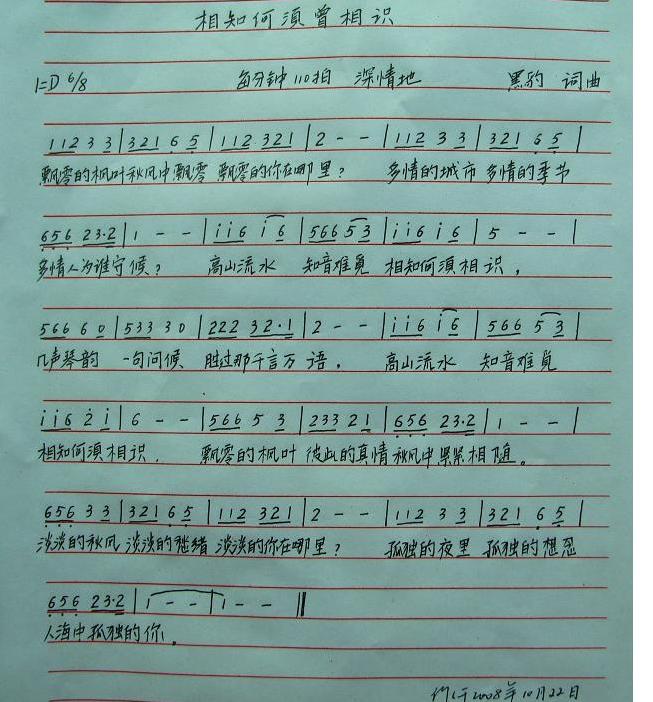 相知何須曾相识
1=D 6/8 每分钟110拍 深情地 黑豹 词曲
112 3 3|321 6 5|112 321|2 - -|112 3 3|321 6 5|
飘零的枫叶秋风中飘零 飘零的你在哪里? 多情的城市 多情的季节
656 23·2|1 - -|i i 6 i 6|566 5 3|i i 6 i 6|5 - -|
多情人为谁守候? 高山流水 知音难覓 相知何須相识,
566 6 0|533 30|222 32·1|2 - -|i i 6 i 6|566 5 3|
几声琴韵 一句问候 胜过那千言万语. 高山流水 知音难覓
i i 6 2 i|6 - -|566 5 3|233 21|656 23·2|1 - -|
相知何須相识. 飘零的枫叶 彼此的真情 秋风中累累相随。
656 3 3|321 6 5|112 321|2 - -|112 3 3|321 6 5|
淡淡的秋风 淡淡的愁绪 淡淡的你在哪里? 孤独的夜里 孤独的想念
656 23·2|1 - -|1 - -‖
人海中孤独的你.
于2008年10月22日